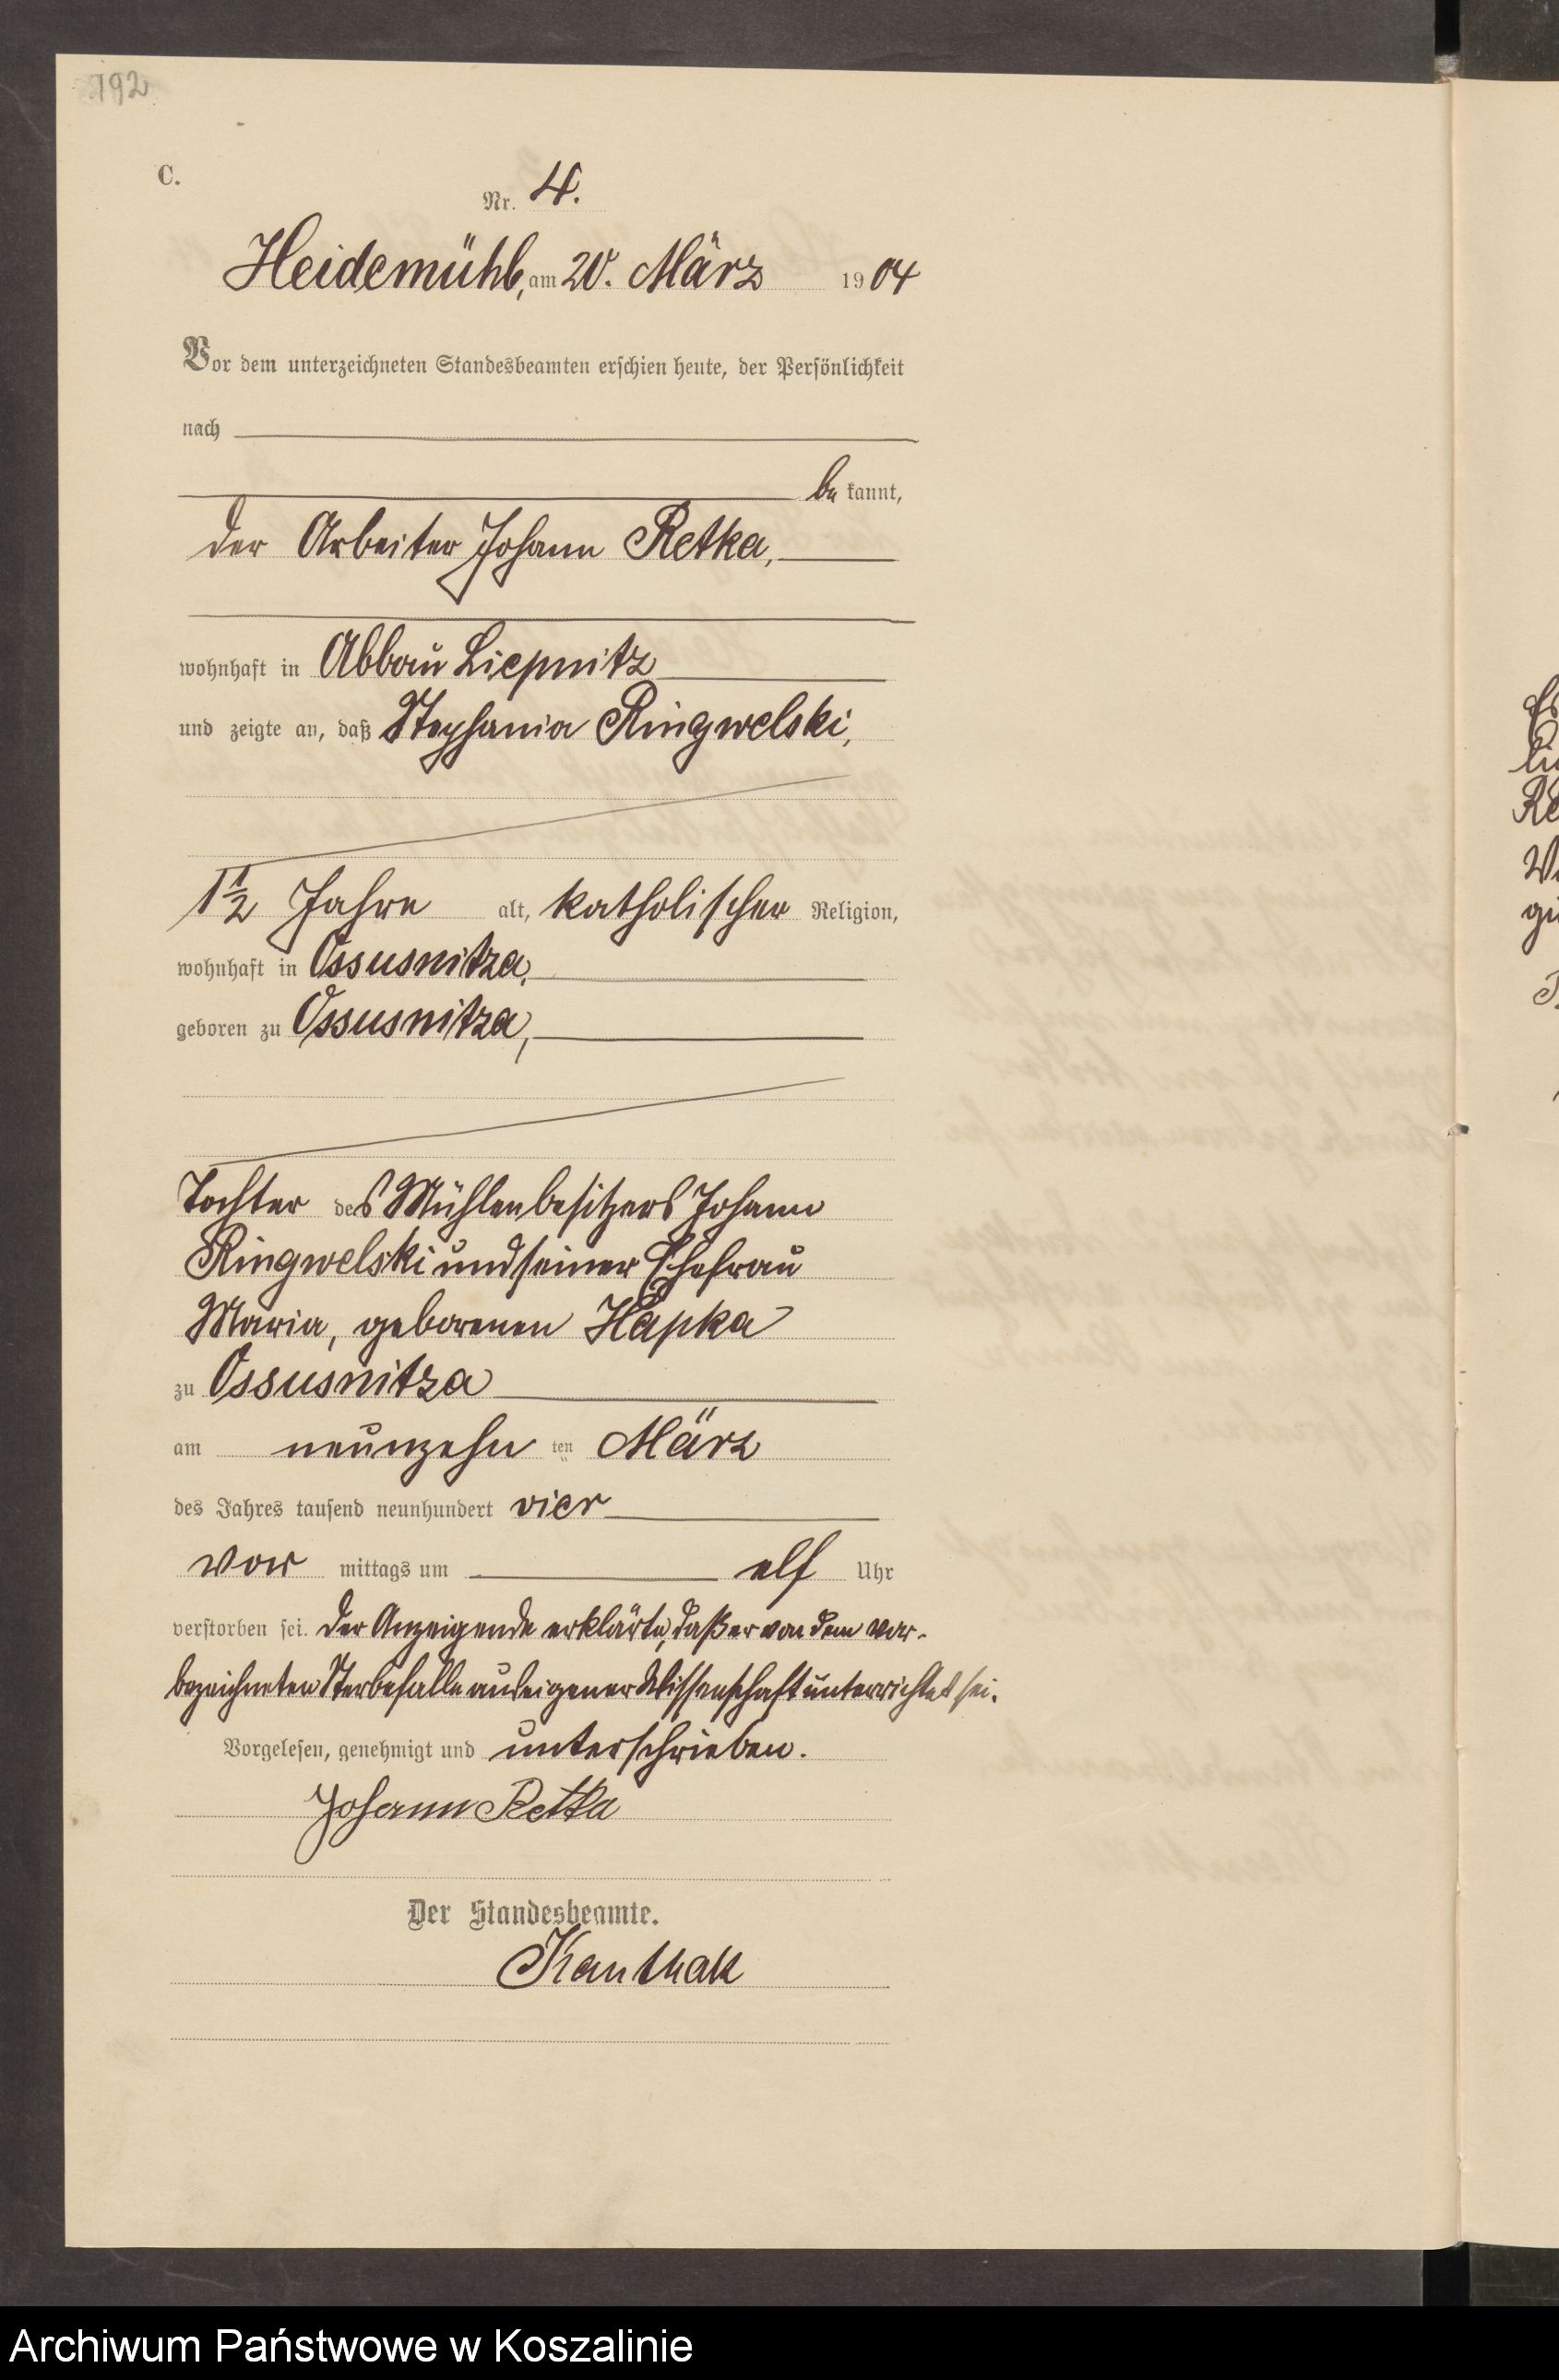 192
C.
Nr. 4.
Heidemühl, am 20. März 1904
Vor dem unterzeichneten Standesbeamten erschien heute, der Persönlichkeit
nach
be kannt,
der Arbeiter Johann Retka,
wohnhaft in Abbau Liepnitz
und zeigte an, daß Stephania Ringwelski,
1½ Jahre alt, katholischer Religion,
wohnhaft in Ossusnitza,
geboren zu Ossusnitza,
Tochter des Mühlenbesitzers Johann
Ringwelski und seiner Ehefrau
Maria, geborenen Hapka
zu Ossusnitza
am neunzehn ten März
des Jahres tausend neunhundert vier
vor mittags um elf Uhr
verstorben sei. Der Anzeigende erklärte, daß er von dem vor-
bezeichneten Sterbefalle aus eigener Wissenschaft unterrichtet sei.
Vorgelesen, genehmigt und unterschrieben.
Johann Retka
Der Standesbeamte.
Kanthak
Archiwum Państwowe w Koszalinie